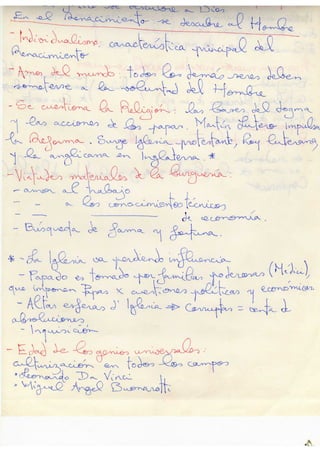 y no se descubre a Dios
En el Renacimiento se descubre al Hombre
- Individualismo: característica principal del
Renacimiento
- Amos del mundo: todos los demás seres deben
someterse a la voluntad del Hombre
- Se cuestiona la Religión: las bases del dogma
y las acciones de los papas. Martín Lutero impulsa
la Reforma. Surge Iglesia protestante, hoy luterana,
y la anglicana en Inglaterra. *
- Virtudes materiales de la burguesía:
- amor al trabajo
- — a los conocimientos técnicos
- — de economía.
- Búsqueda de fama y fortuna.
* - La Iglesia va perdendo influencia
- Papado es tomado por familias poderosas (Médici),
que imponen Papas x cuestiones políticas y económicas
- Altas esferas d' Iglesia => Corruptas = venta de
absoluciones
- Inquisición
- Edad de los genios universales:
culturización en todos los campos
• Leonardo Da Vinci
• Miguel Angel Buonarotti